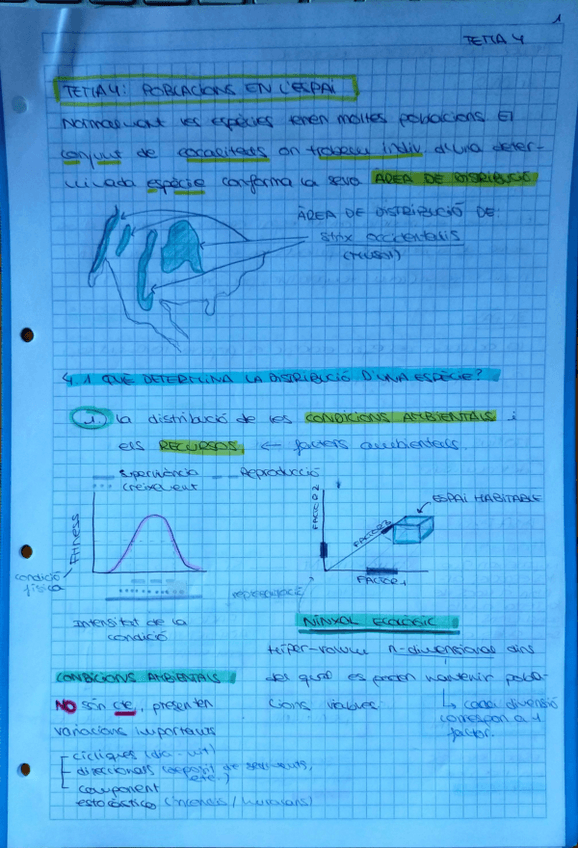 1
TEMA 4
TEMA 4: POBLACIONS EN L'ESPAI
Normalment les espècies tenen moltes poblacions. El
conjunt de localitats on trobem indiv. d'una deter-
minada espècie conforma la seva ÀREA DE DISTRIBUCIÓ
ÀREA DE DISTRIBUCIÓ DE
Strix occidentalis
(mussol)
4.1 QUÈ DETERMINA LA DISTRIBUCIÓ D'UNA ESPÈCIE?
1 la distribució de les CONDICIONS AMBIENTALS i
els RECURSOS ← factors ambientals.
Supervivència
Reproducció
Creixement
Fitness
condició física
Intensitat de la
condició
FACTOR 2
FACTOR 3
FACTOR 1
ESPAI HABITABLE
representació
NINXOL ECOLÒGIC
Hiper-volum n-dimensional dins
del qual es poden mantenir pobla-
cions viables.
↳ cada dimensió
correspon a 1
factor.
CONDICIONS AMBIENTALS
NO són cte, presenten
variacions importants
cícliques (dia-nit)
direccionals (deposit de sediments,
etc.)
component
estocàstico (incendis / huracans)